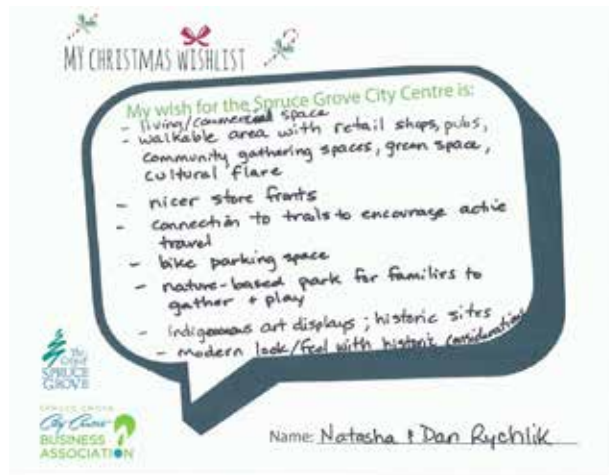 MY CHRISTMAS WISHLIST
My wish for the Spruce Grove City Centre is:
- living/commercial space
- walkable area with retail shops, pubs,
community gathering spaces, green space,
cultural flare
- nicer store fronts
- connection to trails to encourage active
travel
- bike parking space
- nature-based park for families to
gather + play
- indigenous art displays ; historic sites
- modern look/feel with historic considerations
The
City of
SPRUCE
GROVE
SPRUCE GROVE
City Centre
BUSINESS
ASSOCIATION
Name: Natasha & Dan Rychlik